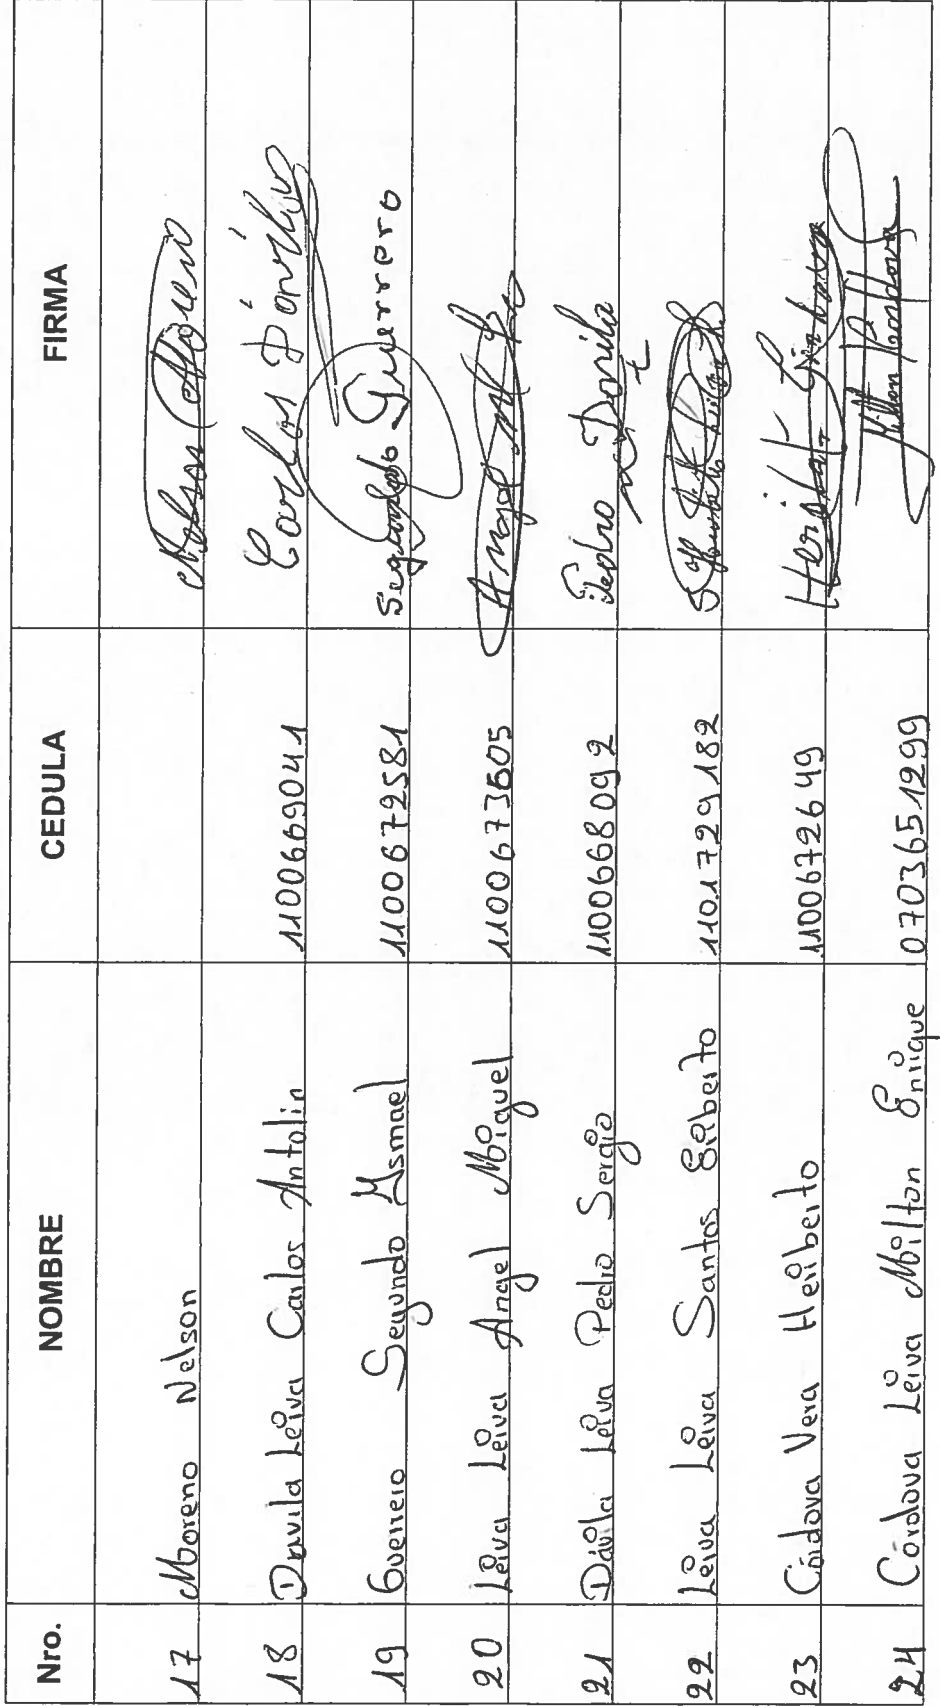 Nro. NOMBRE CEDULA FIRMA
17 Moreno Nelson Nelson Moreno
18 Davila Leiva Carlos Antolin 1100669041 Carlos Dávila
19 Guerrero Segundo Ysmael 1100672581 Segundo Guerrero
20 Leiva Leiva Angel Miguel 1100673605 Angel
21 Dávila Leiva Pedro Sergio 1100668092 Pedro Davila
22 Leiva Leiva Santos Gilberto 1101729182
23 Córdova Vera Heriberto 1100672649
24 Córdova Leiva Milton Enrique 0703651299 Milton Cordova